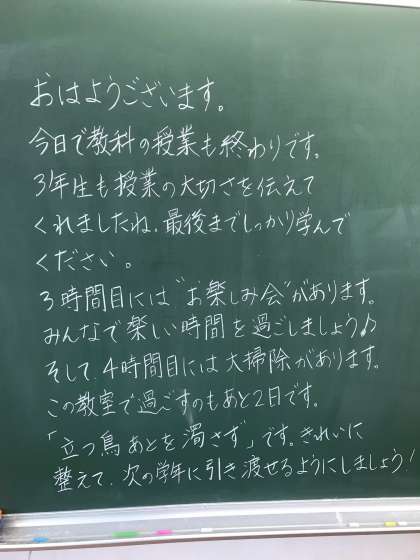 おはようございます。
今日で教科の授業も終わりです。
3年生も授業の大切さを伝えて
くれましたね。最後までしっかり学んで
ください。
3時間目には"お楽しみ会"があります。
みんなで楽しい時間を過ごしましょう♪
そして、4時間目には大掃除があります。
この教室で過ごすのもあと2日です。
「立つ鳥あとを濁さず」です。きれいに
整えて、次の学年に引き渡せるようにしましょう!